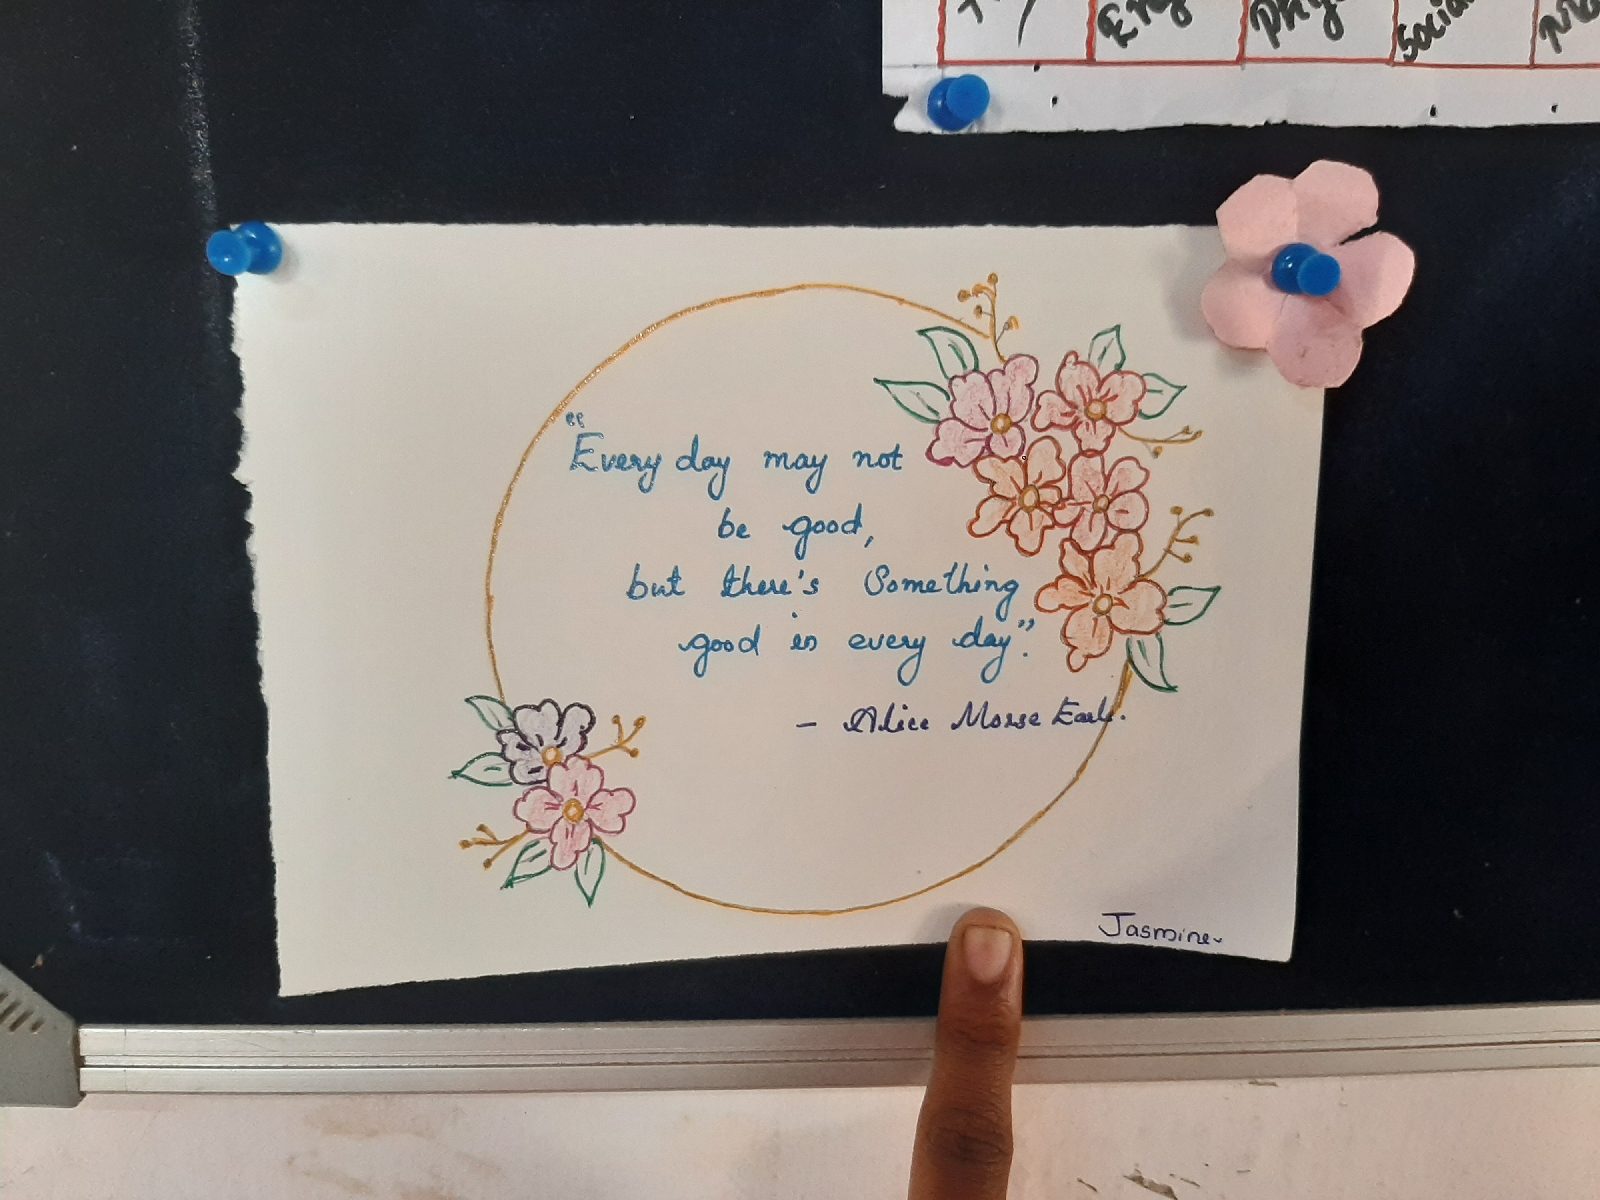 Eng
Phy
Social
"Every day may not
be good,
but there's Something
good in every day".
- Alice Morse Earle.
Jasmine